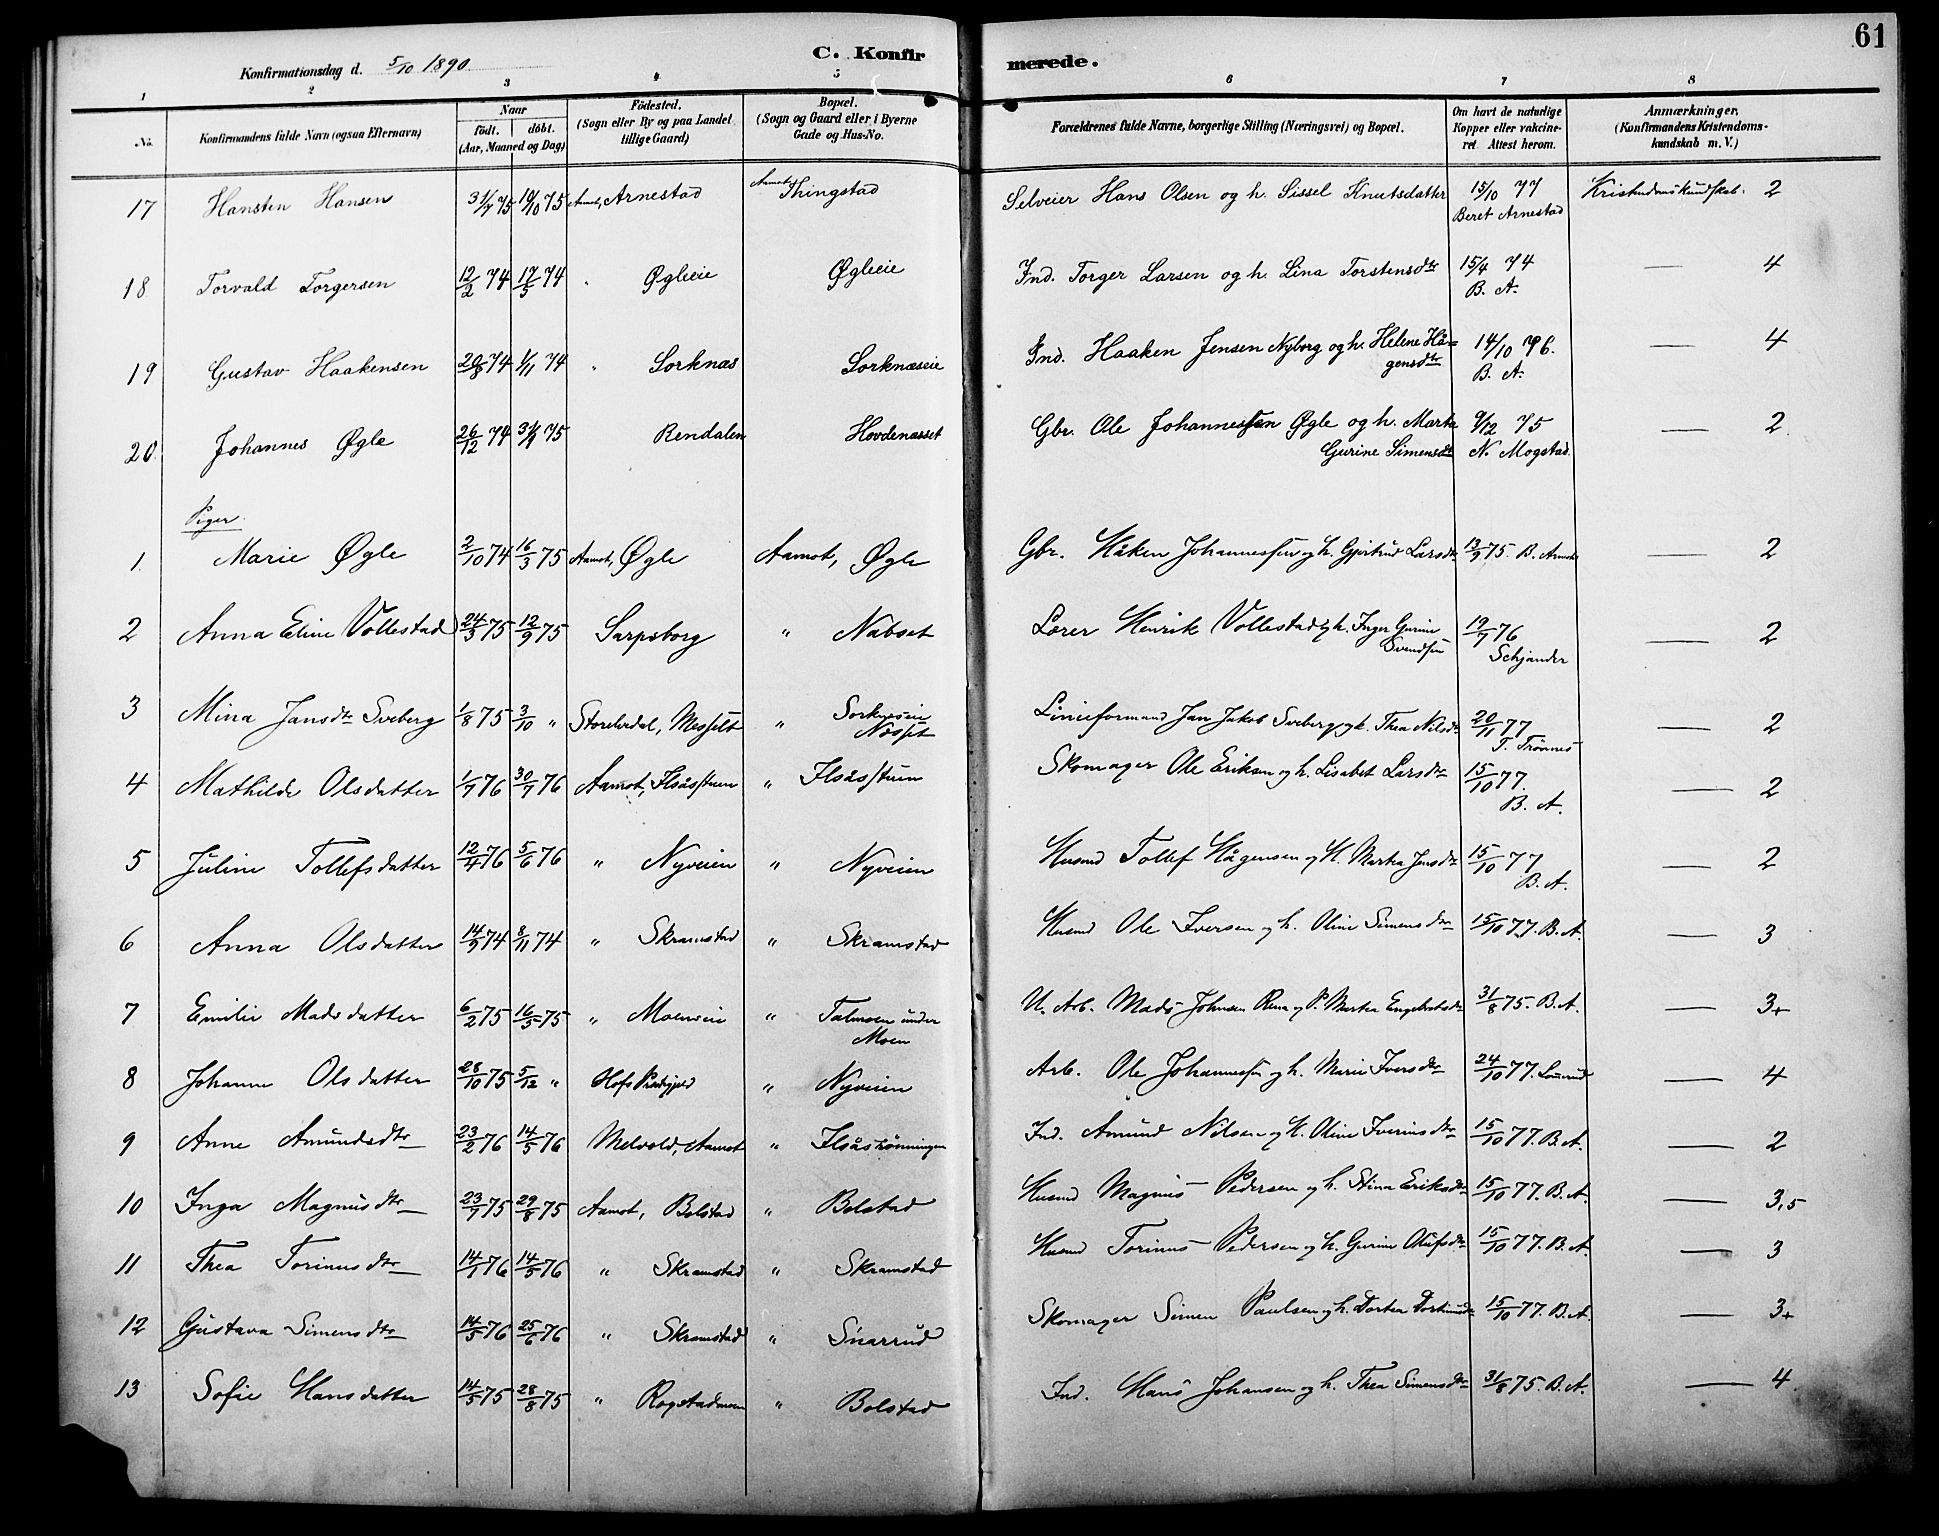 61
C. Konfirmerede.
Konfirmationsdag d. 5/10 1890
1 2 3 4 5 6 7 8
No.
Konfirmandens fulde Navn (ogsaa Efternavn)
Naar
födt. döbt.
(Aar, Maaned og Dag)
Födested.
(Sogn eller By og paa Landet
tillige Gaard)
Bopæl.
(Sogn og Gaard eller i Byerne
Gade og Hus-No.
Forældrenes fulde Navne, borgerlige Stilling (Næringsvei) og Bopæl.
Om havt de naturlige
Kopper eller vakcine-
ret. Attest herom.
Anmærkninger.
(Konfirmandens Kristendoms-
kundskab m. V.)
17 Hansten Hansen 31/7 75 10/10 75 Aamot, Arnestad Aamot, Thingstad Selveier Hans Olsen og h. Sissel Knutsdatter 15/10 77 Kristendomskundskab. 2
Beret Arnestad
18 Torvald Torgersen 12/2 74 17/5 74 " Øgleeie Øgleeie Ind. Torger Larsen og h. Lina Torstensdtr 15/4 74 — 4
B. A.
19 Gustav Haakensen 20/8 74 1/11 74 " Sorknæs Sorknæseie Ind. Haaken Jensen Nyborg og h. Helene Hå= 14/10 76. — 4
gensdtr B. A.
20. Johannes Øgle 26/12 74 75 Rendalen Hovdenæsset Gbr. Ole Johannessen Øgle og h. Marte 9/12 75 — 2
Gurine Simensdtr N. Mogstad.
Piger.
1. Marie Øgle 2/10 74 16/3 75 Aamot, Øgle Aamot, Øgle Gbr. Håken Johannessen og h. Gjertrud Larsdtr 13/9 75. B. — 2
2 Anna Eline Vollestad 24/3 75 12/9 75 Sarpsborg " Nabset Lærer Henrik Vollestad og h. Inger Gurine 19/7 76 — 2
Svendsen Schjander
3 Mina Jansdtr Sveberg 1/8 75 3/10 " Storelvdal, Messelt " Linieformand Jan Jakob Sveberg og h. Thea Nilsdtr 20/11 77 — 2
Næsset T. Trønnes
4 Mathilde Olsdatter 1/7 76 30/7 76 Aamot, Ilsåsstuen " Ilsåsstuen Skomager Ole Eriksen og h. Lisabet Larsdtr 15/10 77. — 2
B. A.
5 Juline Tollefsdatter 12/4 76 5/6 76 " Nyveien " Nyveien Husmd Tollef Hågensen og H. Martea Jensdtr 15/10 77 — 2
B. A.
6 Anna Olsdatter 14/9 74 8/11 74 " Skramstad " Skramstad Husmd Ole Iversen og h. Oline Simensdtr 15/10 77. B. A. — 3
7 Emilie Madsdatter 6/2 75 16/5 75 " Moenseie " under U. Arb. Mads Johnsen Rena og Martea Engebretsdtr 31/8 75. B. A. — 3+
Moen
8 Johanne Olsdatter 28/10 75 5/12 " Hofs Prestgjeld " Nyveien Arb. Ole Johannessen og h. Marie Iversdtr 24/10 77. — 4
9 Anne Amundsdtr 23/2 76 14/5 76 Melvold, Aamot " Ilsåsrønningen Ind. Amund Nilsen og H. Oline 15/10 77. B. A. — 2
10 Inga Magnusdtr 23/7 75 29/8 75 Aamot, Bolstad " Bolstad Husmd Magnus Pedersen og h. Stina Eriksdtr 15/10 77. B. A. — 3,5
11 Thea Torinusdtr 14/1 76 14/5 76 " Skramstad " Skramstad Husmd Torinus Pedersen og h. Gurine Olufsdtr 15/10 77. B. A. — 3
12 Gustava Simensdtr 14/5 76 25/6 76 " Skramstad " Snarrud Skomager Simen Paulsen og h. Dortea 15/10 77. B. A. — 3+
13 Sofie Hansdatter 14/5 75 28/8 75 " Rogstadmoen " Bolstad Ind. Hans Johansen og h. Thea Simensdtr 31/8 75. B. A. — 4.